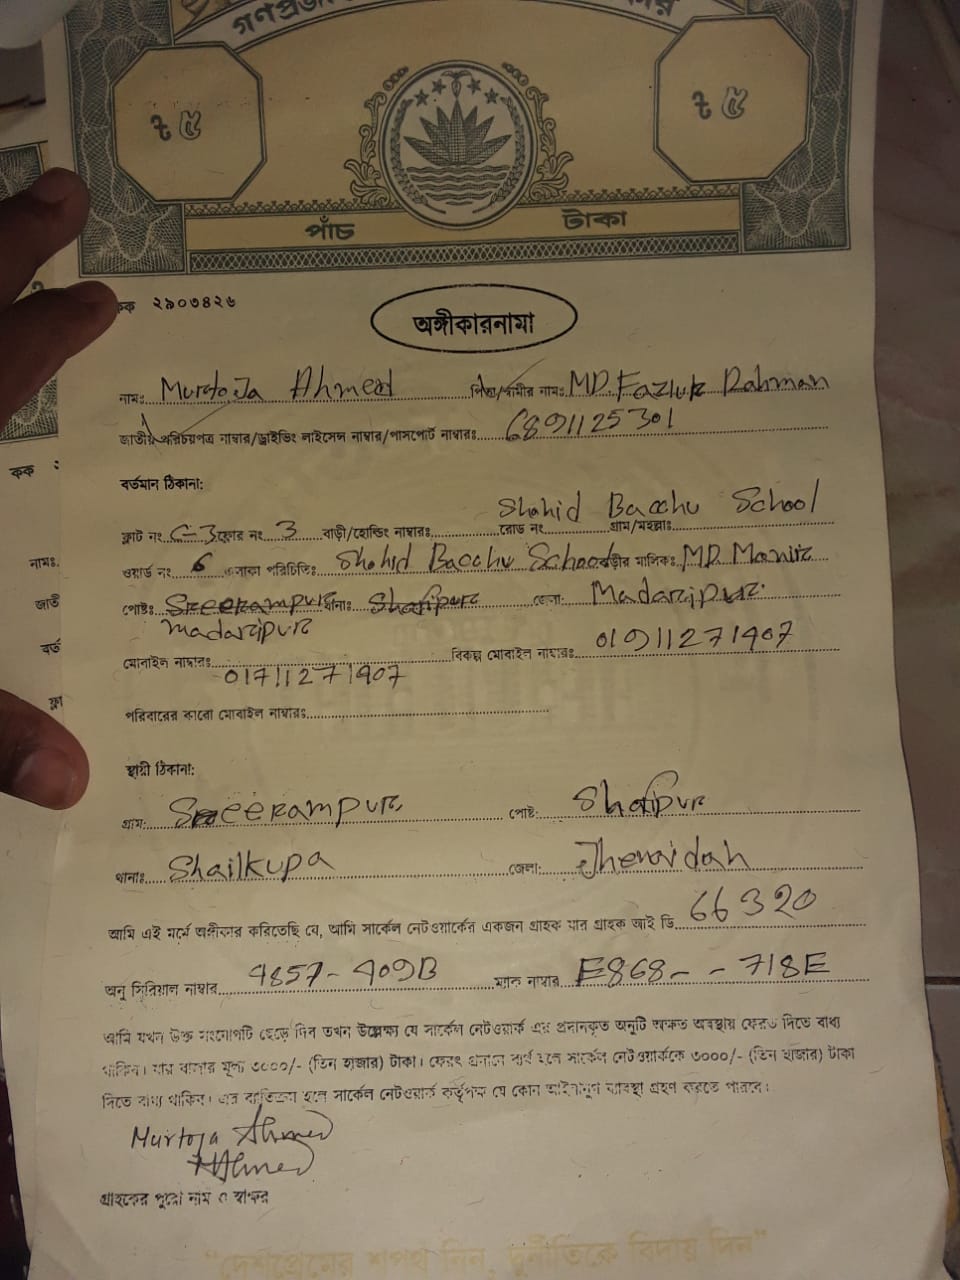 গণপ্রজা
৳ ৫ ৳ ৫
পাঁচ টাকা
কক ২৯০৩৪২৬
অঙ্গীকারনামা
নামঃ Murtoja Ahmed পিতা/স্বামীর নামঃ MD. Fazlur Rahman
জাতীয় পরিচয়পত্র নাম্বার/ড্রাইভিং লাইসেন্স নাম্বার/পাসপোর্ট নাম্বারঃ 6891125301
বর্তমান ঠিকানা:
Shahid Bacchu School
ফ্লাট নং C-3 ফ্লোর নং 3 বাড়ী/হোল্ডিং নাম্বারঃ রোড নং গ্রাম/মহল্লাঃ
ওয়ার্ড নং 6 এলাকা পরিচিতিঃ Shahid Bacchu School বাড়ীর মালিকঃ MD. Monir
পোষ্টঃ Sreerampur থানাঃ Shafipur জেলা: Madaripur
Madaripur
মোবাইল নাম্বারঃ 01711271907 বিকল্প মোবাইল নাম্বারঃ 01911271907
পরিবারের কারো মোবাইল নাম্বারঃ
স্থায়ী ঠিকানা:
গ্রাম: Sreerampur পোষ্ট: Shafipur
থানাঃ Shailkupa জেলা: Jhenaidah
আমি এই মর্মে অঙ্গীকার করিতেছি যে, আমি সার্কেল নেটওয়ার্কের একজন গ্রাহক যার গ্রাহক আই ডি 66320
অনু সিরিয়াল নাম্বার 4857-409B ম্যাক নাম্বার E868- - 718E
আমি যখন উক্ত সংযোগটি ছেড়ে দিব তখন উল্লেক্ষ্য যে সার্কেল নেটওয়ার্ক এর প্রদানকৃত অনুটি অক্ষত অবস্থায় ফেরত দিতে বাধ্য
থাকিব। যার বাজার মূল্য ৩০০০/- (তিন হাজার) টাকা। ফেরৎ প্রদানে ব্যর্থ হলে সার্কেল নেটওয়ার্ককে ৩০০০/- (তিন হাজার) টাকা
দিতে বাধ্য থাকিব। এর ব্যতিক্রম হলে সার্কেল নেটওয়ার্ক কর্তৃপক্ষ যে কোন আইনানুগ ব্যবস্থা গ্রহণ করতে পারবে।
Murtoja Ahmed
Ahmed
গ্রাহকের পুরো নাম ও স্বাক্ষর
"দেশপ্রেমের শপথ নিন, দুর্নীতিকে বিদায় দিন"
কক :
নামঃ
জাতী
বর্ত
ফ্লা